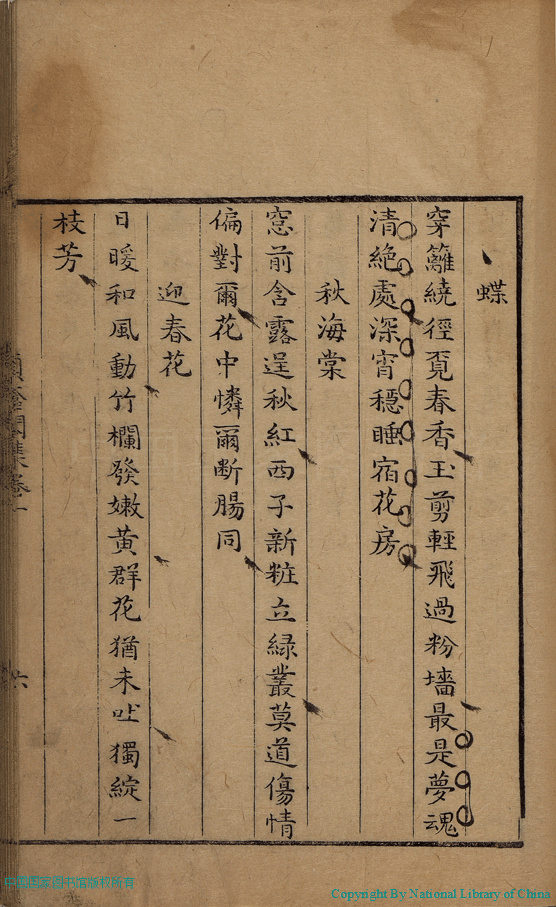 蝶
穿籬繞徑覔春香玉剪輕飛過粉墻最是夢魂
清絶處深宵穩睡宿花房
秋海棠
窓前含露逞秋紅西子新粧立緑叢莫道傷情
偏對爾花中憐爾断腸同
迎春花
日暖和風動竹欄發嫩黄群花猶未吐獨綻一
枝芳
集卷一
六
中国国家图书馆版权所有
Copyright By National Library of China